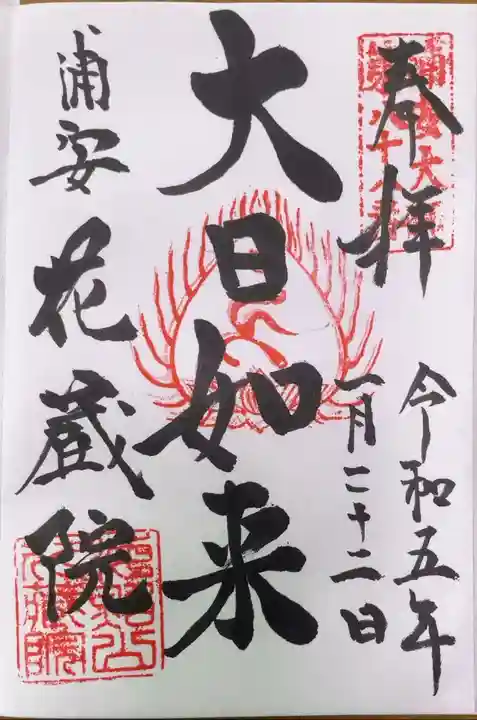 奉拝
令和五年
一月二十二日
大日如来
浦安
花蔵院